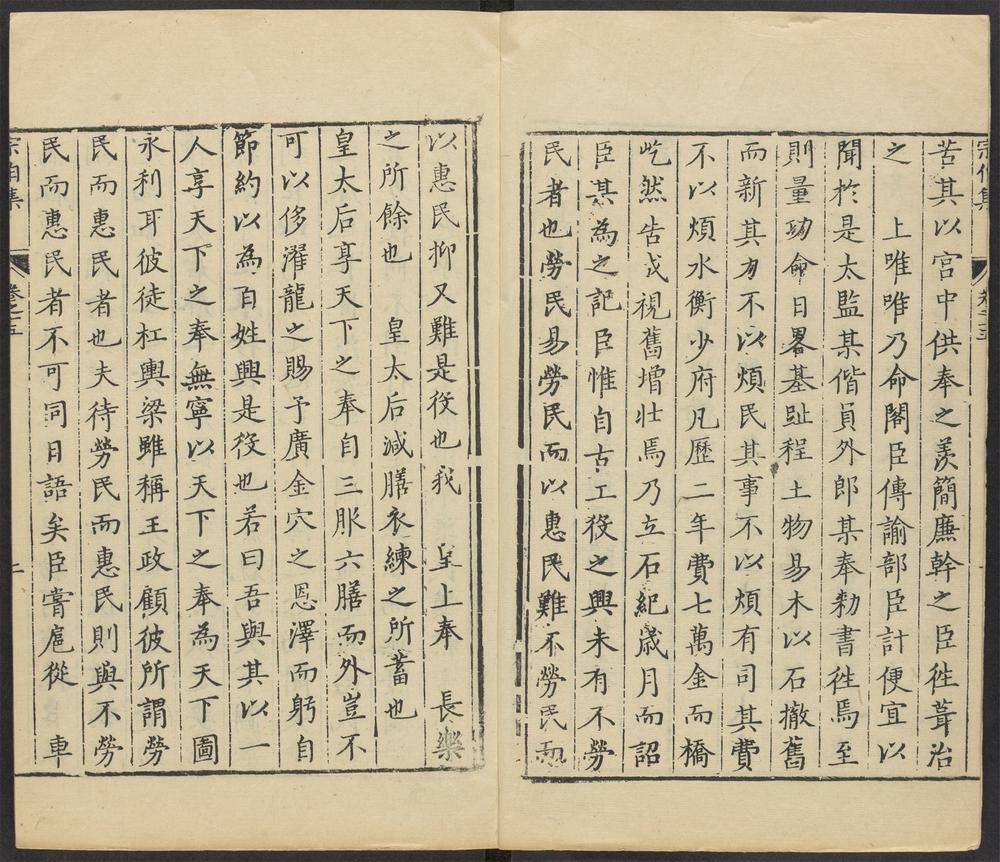 宗伯集
卷之五
苦其以宮中供奉之羡簡廉幹之臣徃葺治
之　上唯唯乃命閣臣傳諭部臣計便宜以
聞於是太監某偕員外郎某奉勑書徃焉至
則量功命日畧基趾程土物易木以石撤舊
而新其力不以煩民其事不以煩有司其費
不以煩水衡少府凡歷二年費七萬金而橋
屹然告成視舊增壯焉乃立石紀歲月而詔
臣某為之記臣惟自古工役之興未有不勞
民者也勞民易勞民而以惠民難不勞民而
以惠民抑又難是役也我　皇上奉　長樂
之所餘也　皇太后減膳衣練之所蓄也
皇太后享天下之奉自三服六膳而外豈不
可以侈濯龍之賜予廣金穴之恩澤而躬自
節約以為百姓興是役也若曰吾與其以一
人享天下之奉無寧以天下之奉為天下圖
永利耳彼徒杠輿梁雖稱王政顧彼所謂勞
民而惠民者也夫待勞民而惠民則與不勞
民而惠民者不可同日語矣臣嘗扈從　車
宗伯集
卷之五
二